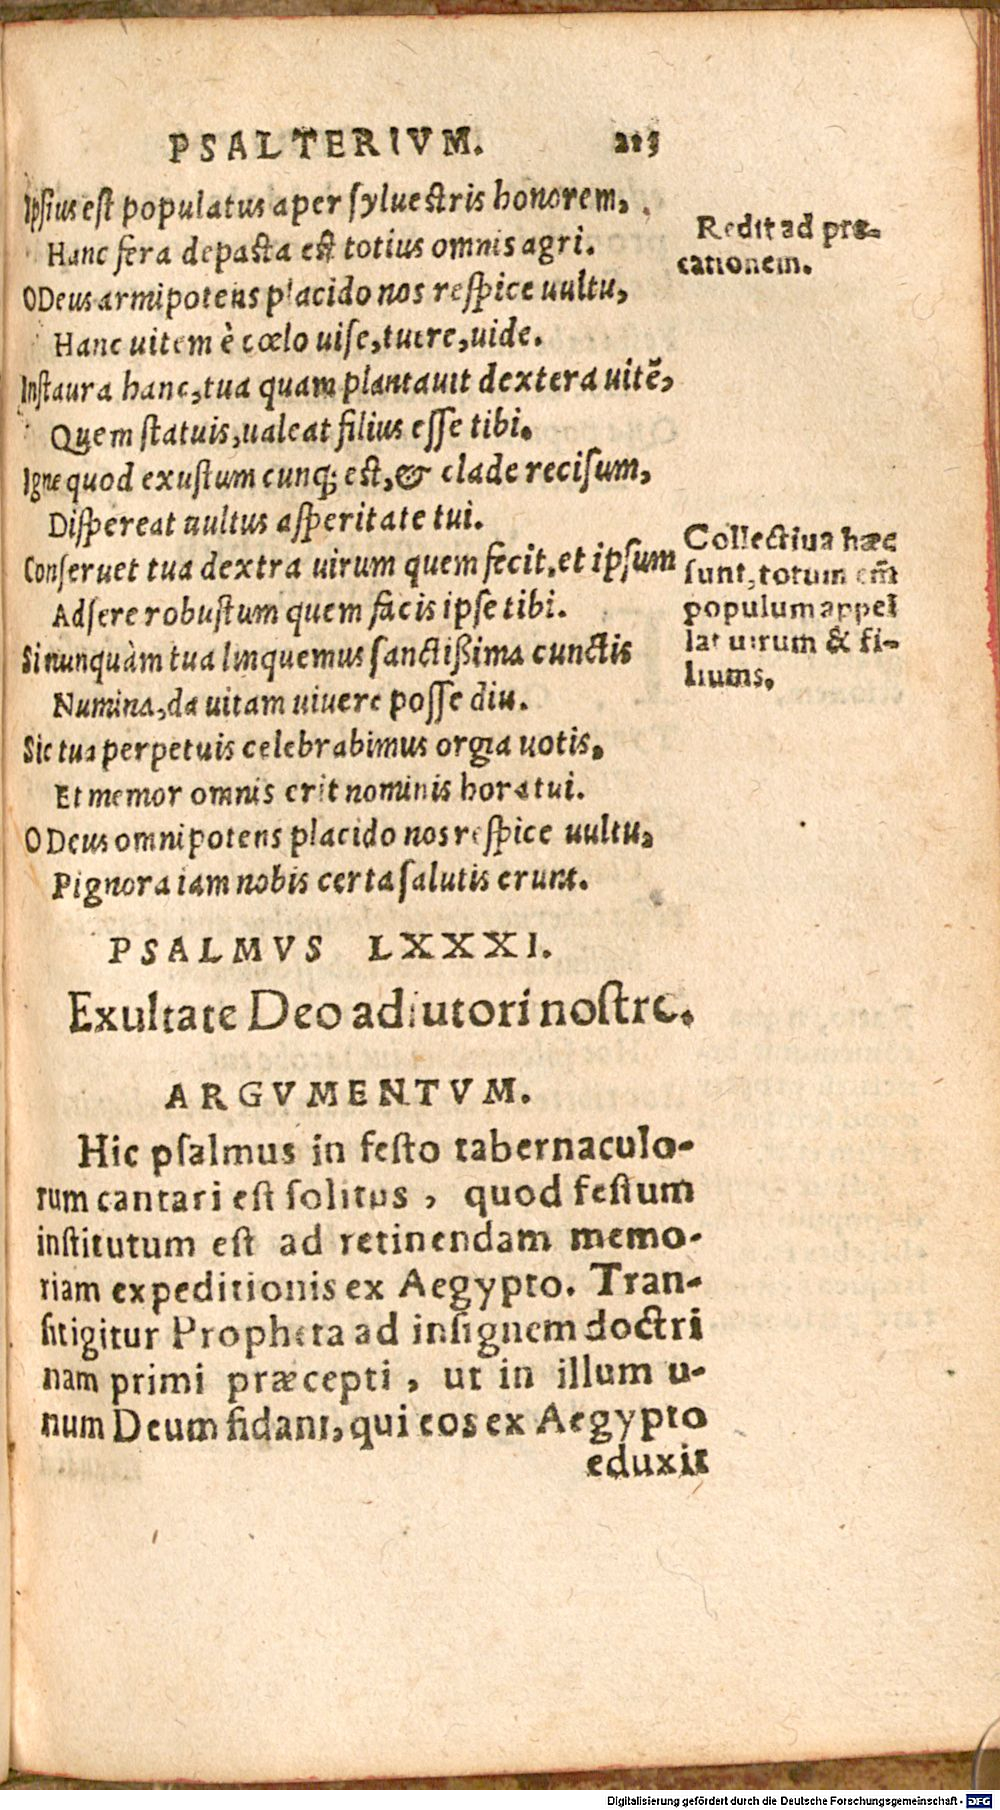 PSALTERIVM. 213
Ipsius est populatus aper syluestris honorem,
Hanc fera depasta est totius omnis agri.
Redit ad præ-
cationem.
O Deus armipotens placido nos respice uultu,
Hanc uitem è cœlo uise, tuere, uide.
Instaura hanc, tua quam plantauit dextera uitē,
Quem statuis, ualeat filius esse tibi.
Igne quod exustum cunq; est, & clade recisum,
Dispereat uultus asperitate tui.
Conseruet tua dextra uirum quem fecit, et ipsum
Adsere robustum quem facis ipse tibi.
Collectiua hæc
sunt, totum em̄
populum appel
lat uirum & fi-
liums.
Si nunquàm tua linquemus sanctißima cunctis
Numina, da uitam uiuere posse diu.
Sic tua perpetuis celebrabimus orgia uotis,
Et memor omnis erit nominis hora tui.
O Deus omnipotens placido nos respice uultu,
Pignora iam nobis certa salutis erunt.
PSALMVS LXXXI.
Exultate Deo adiutori nostro.
ARGVMENTVM.
Hic psalmus in festo tabernaculo-
rum cantari est solitus, quod festum
institutum est ad retinendam memo-
riam expeditionis ex Aegypto. Tran-
sit igitur Propheta ad insignem doctri
nam primi præcepti, ut in illum u-
num Deum fidant, qui eos ex Aegypto
eduxit
Digitalisierung gefördert durch die Deutsche Forschungsgemeinschaft - DFG